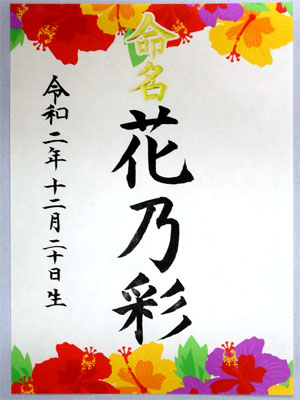 命名
花乃彩
令和二年十二月二十日生